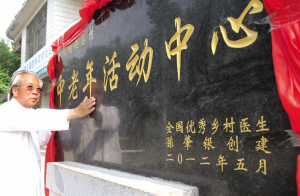 中老年活动中心
全国优秀乡村医生
孙肇银创建
二〇一二年五月